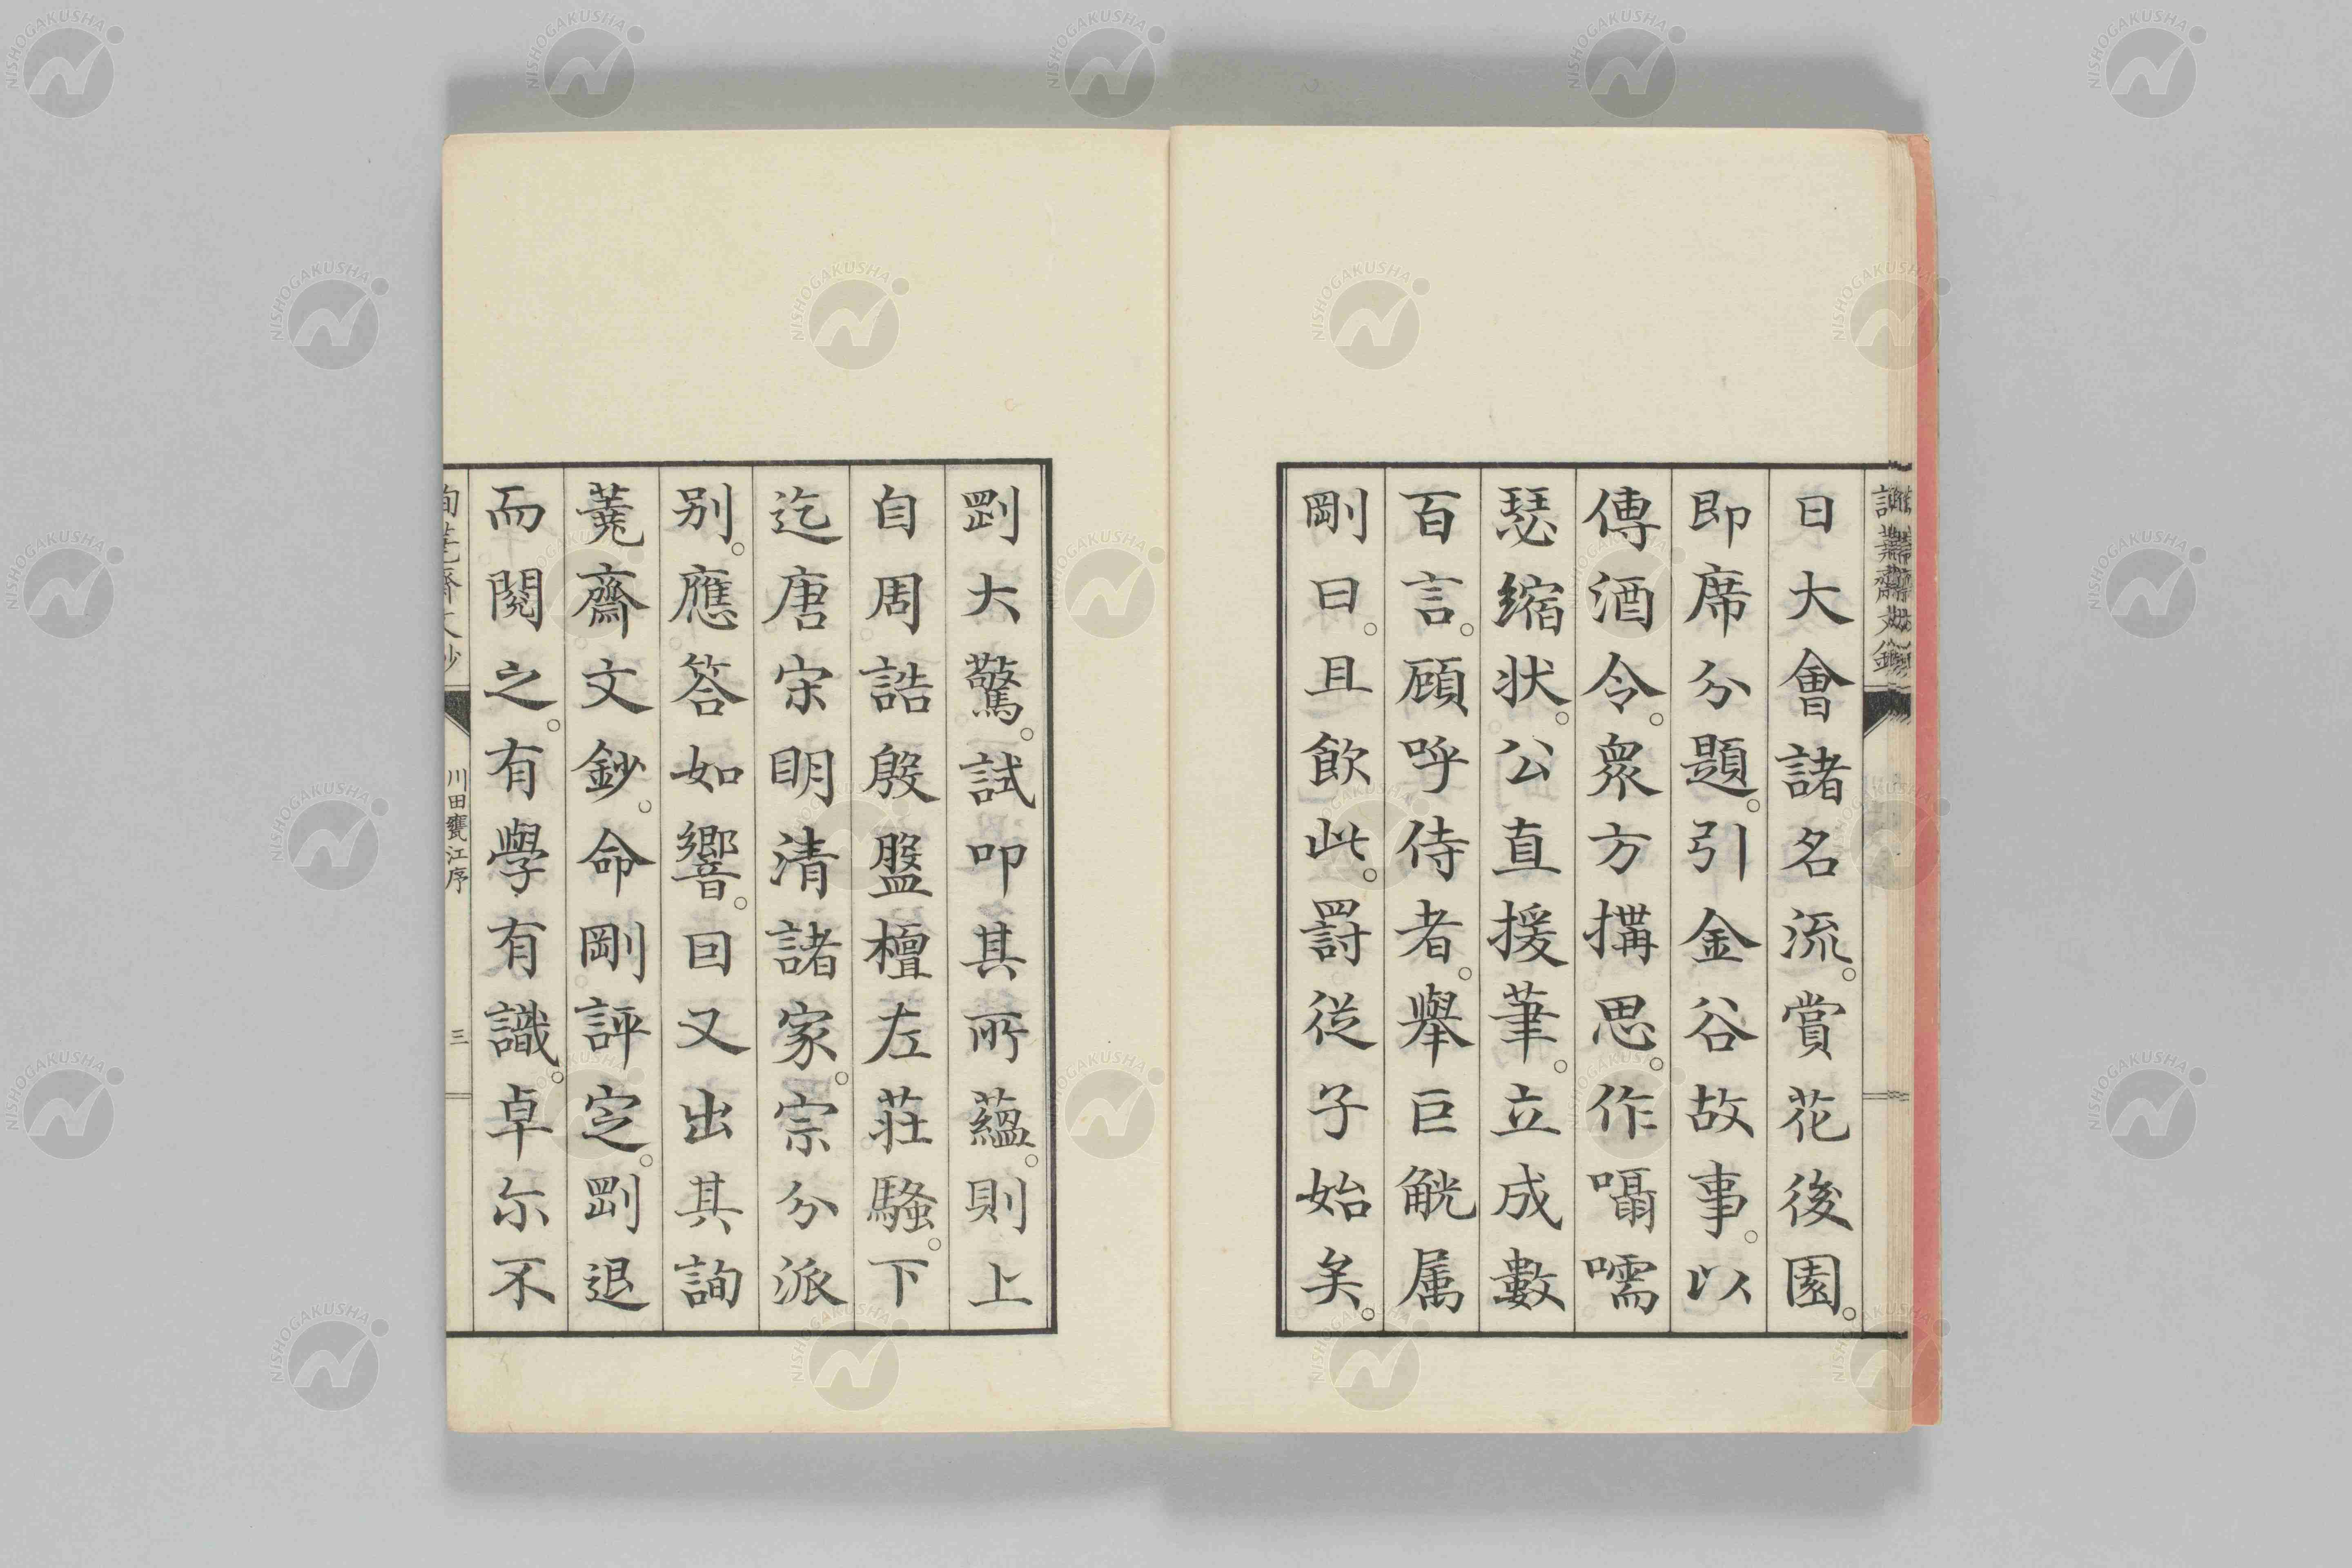 日大會諸名流。賞花後園。
即席分題。引金谷故事。以
傳酒令。衆方搆思。作囁嚅
瑟縮状。公直援筆。立成數
百言。顧呼侍者。舉巨觥属
剛曰。且飲此。罰從子始矣。
剛大驚。試叩其所蘊。則上
自周誥殷盤檀左莊騷。下
迄唐宋明清諸家。宗分派
别。應答如響。曰又出其詢
蕘齋文鈔。命剛評定。剛退
而閱之。有學有識。卓尓不
川田甕江序
三
NISHOGAKUSHA